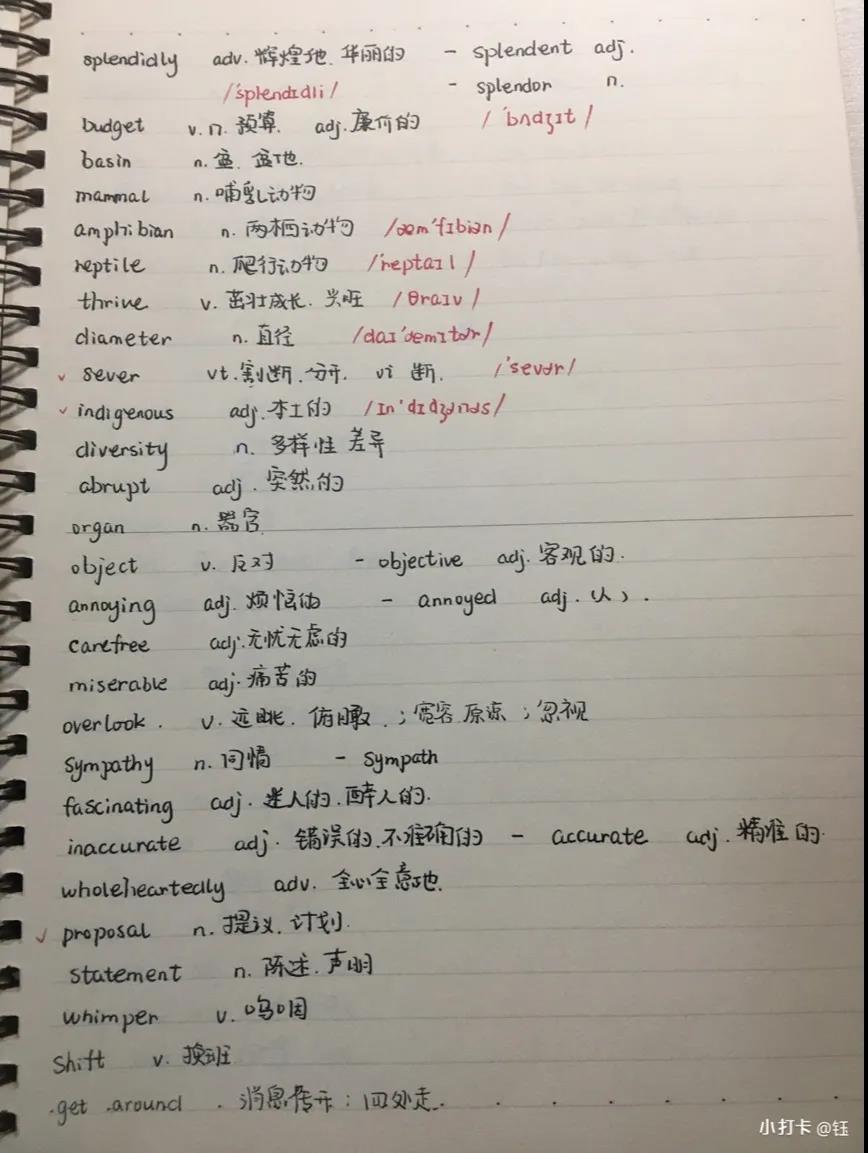 splendidly adv. 辉煌地. 华丽的 - splendent adj.
/'splendɪdli/ - splendor n.
budget v. n. 预算. adj. 廉价的 /'bʌdʒɪt/
basin n. 盆. 盆地.
mammal n. 哺乳动物
amphibian n. 两栖动物 /æm'fɪbiən/
reptile n. 爬行动物 /'reptaɪl/
thrive v. 茁壮成长. 兴旺 /θraɪv/
diameter n. 直径 /daɪ'æmɪtər/
✓ sever vt. 割断. 分开. vi 断. /'sevər/
✓ indigenous adj. 本土的 /ɪn'dɪdʒənəs/
diversity n. 多样性 差异
abrupt adj. 突然的
organ n. 器官
object v. 反对 - objective adj. 客观的.
annoying adj. 烦恼的 - annoyed adj. (人).
carefree adj. 无忧无虑的
miserable adj. 痛苦的
overlook. v. 远眺. 俯瞰. ; 宽容 原谅 ; 忽视
sympathy n. 同情 - sympath
fascinating adj. 迷人的. 醉人的.
inaccurate adj. 错误的. 不准确的 - accurate adj. 精准的.
wholeheartedly adv. 全心全意地.
✓ proposal n. 提议. 计划.
statement n. 陈述. 声明
whimper v. 呜咽
shift v. 换班
get around. 消息传开 : 四处走.
小打卡 @钰